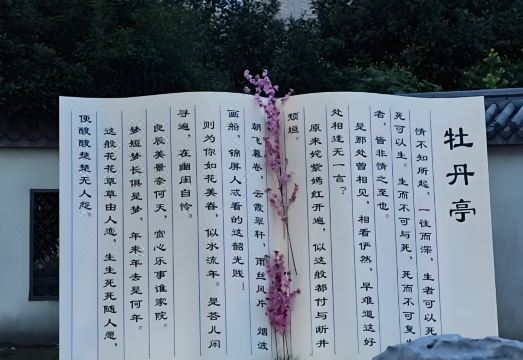 牡丹亭
情不知所起，一往而深，生者可以死
死可以生。生而不可与死，死而不可复生
者，皆非情之至也。
是那处曾相见，相看俨然，早难道这好
处相逢无一言？
原来姹紫嫣红开遍，似这般都付与断井
颓垣。
朝飞暮卷，云霞翠轩，雨丝风片，烟波
画船，锦屏人忒看的这韶光贱！
则为你如花美眷，似水流年。是答儿闲
寻遍，在幽闺自怜。
良辰美景奈何天，赏心乐事谁家院。
梦短梦长俱是梦，年来年去是何年。
这般花花草草由人恋，生生死死随人愿，
便酸酸楚楚无人怨。